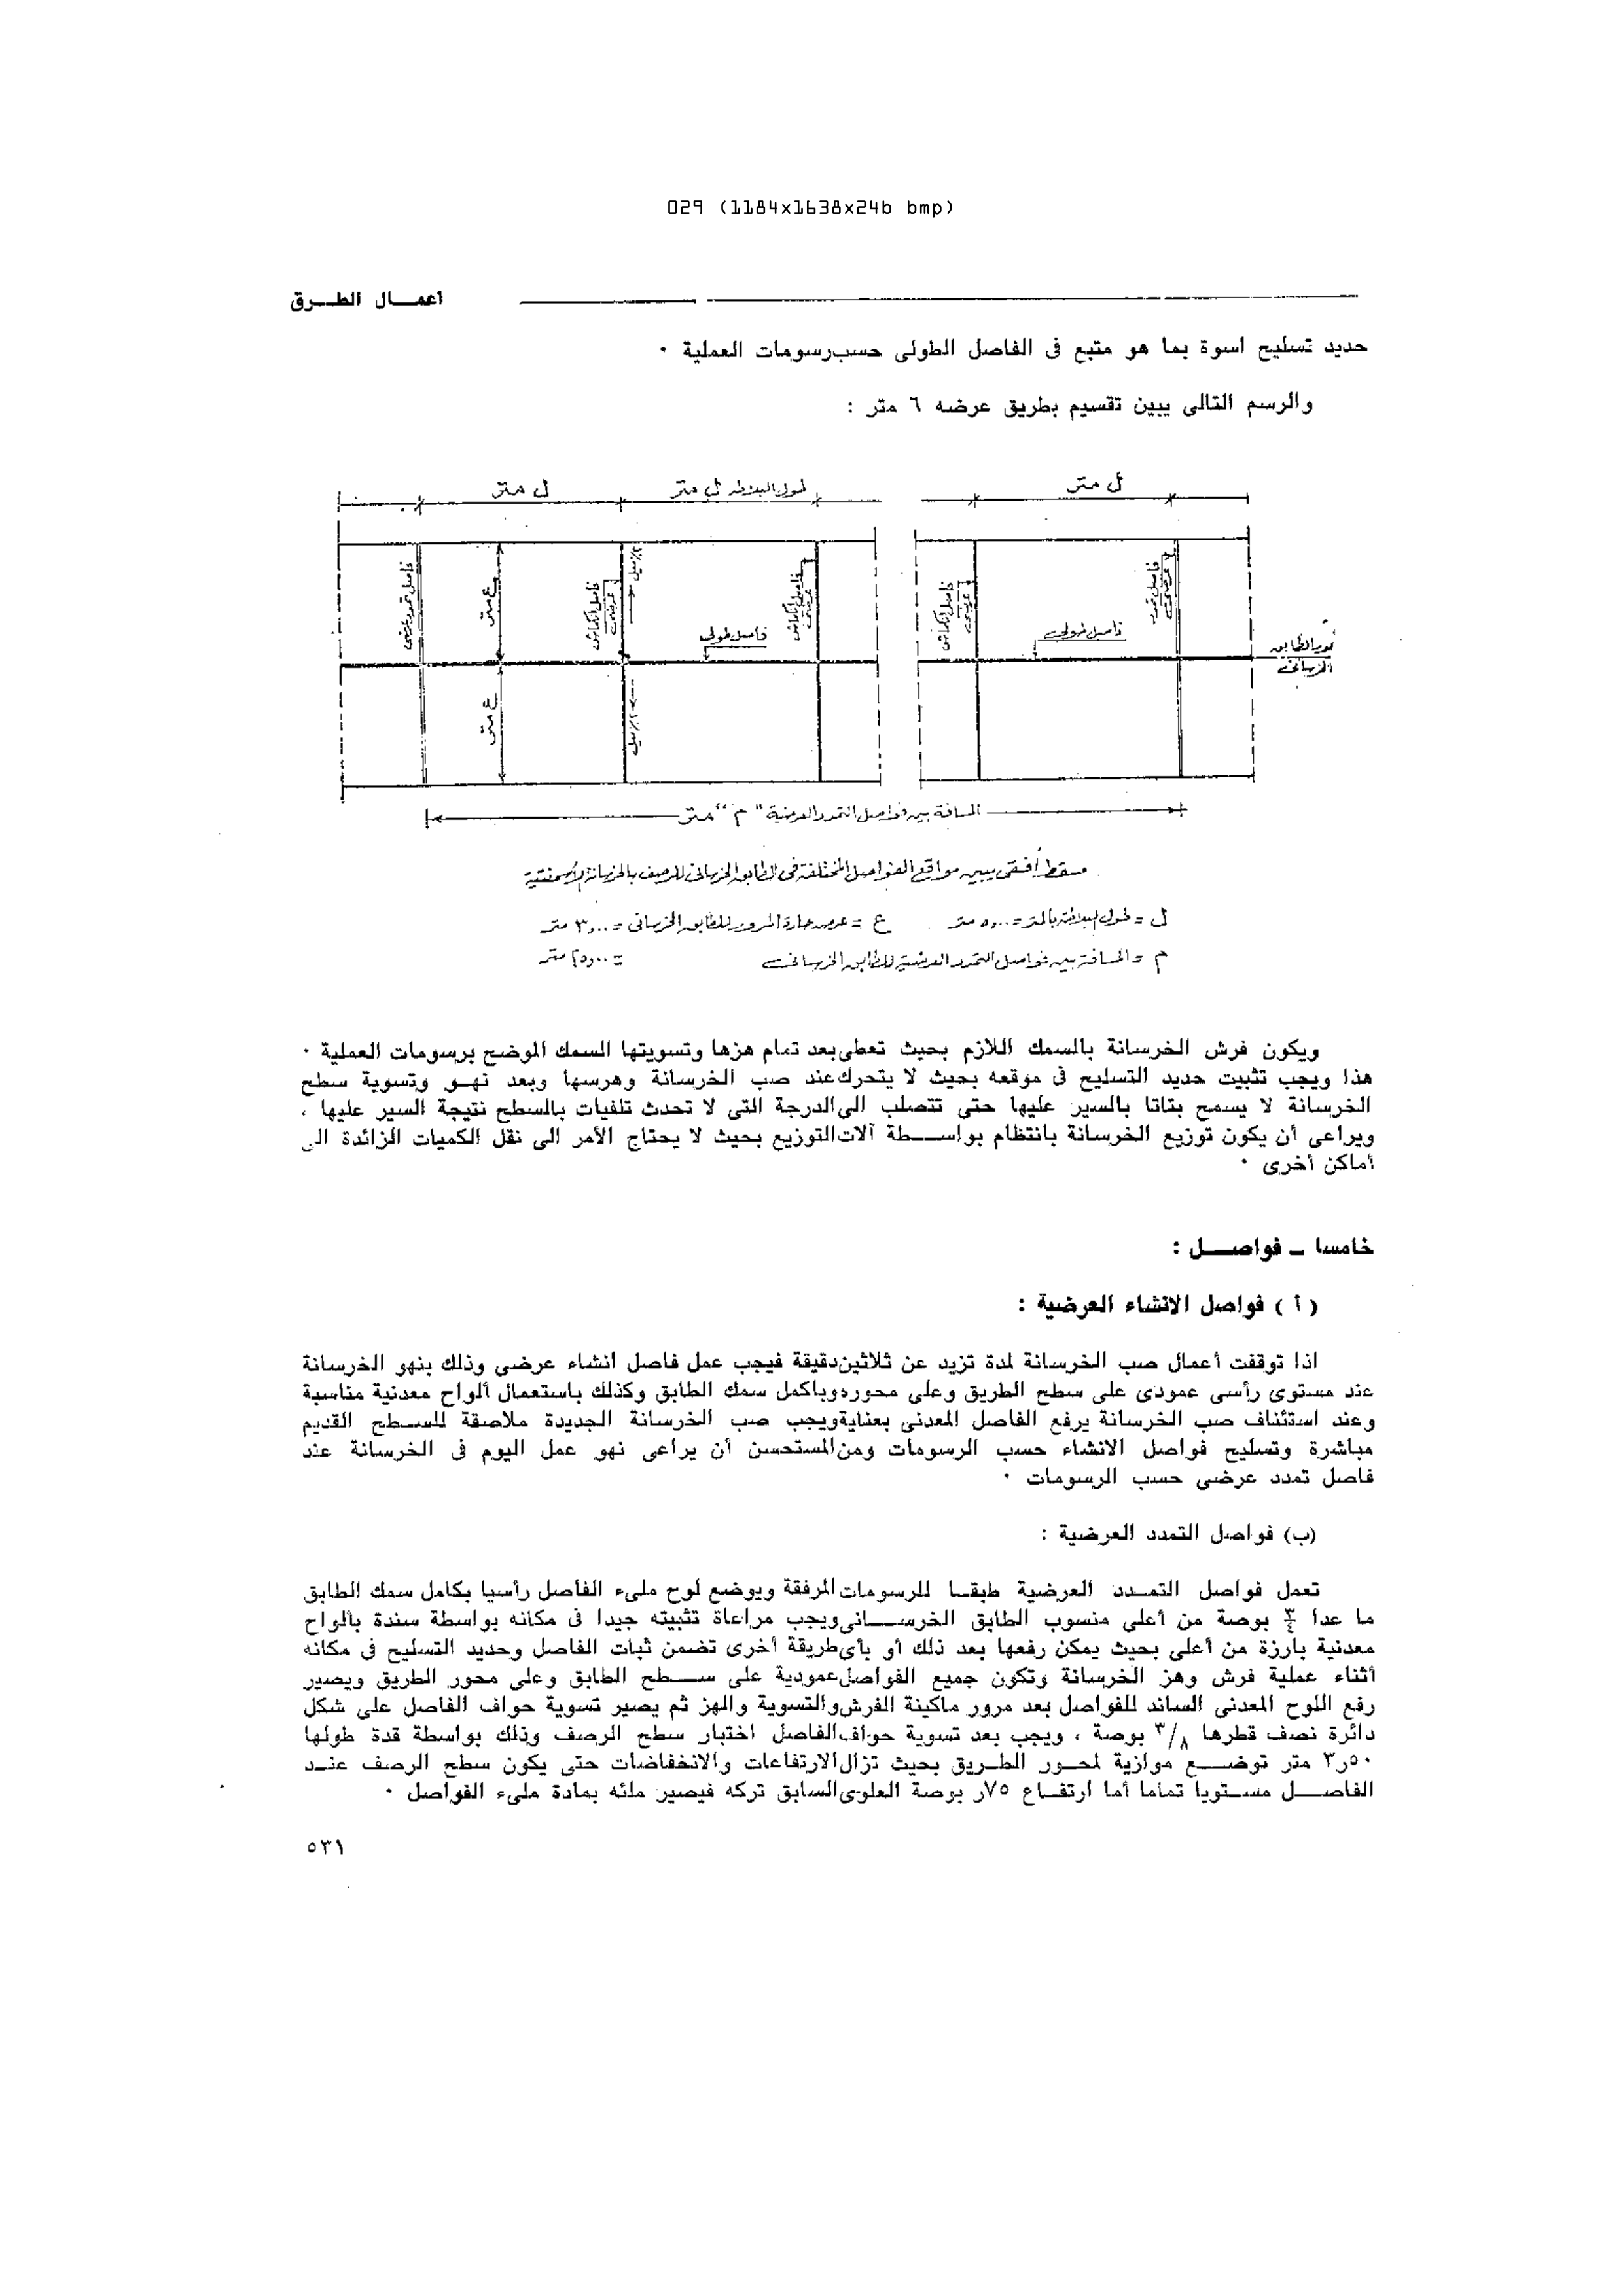 029 (1184x1638x24b bmp)
اعمـــال الطـــرق
حديد تسليح اسوة بما هو متبع فى الفاصل الطولى حسب رسومات العملية ٠
والرسم التالى يبين تقسيم بطريق عرضه ٦ متر :
ل متر
طول البلاطه ل متر
ل متر
فاصل تمدد عرضى
ع متر
فاصل انكماش عرضى
٢٪ ميل
فاصل طولى
فاصل انكماش عرضى
فاصل انكماش عرضى
فاصل طولى
فاصل تمدد عرضى
محور الطابق
الخرسانى
ع متر
٢٪ ميل
المسافة بين فواصل التمدد العرضية " م " متر
مسقط أفقى يبين مواقع الفواصل المختلفة فى الطابق الخرسانى للرصيف بالخرسانة الأسمنتية
ل = طول البلاطة بالمتر = ٥٫٠٠ متر ع = عرض حارة المرور للطابق الخرسانى = ٣٫٠٠ متر
م = المسافة بين فواصل التمدد العرضية للطابق الخرسانى = ٢٥٫٠٠ متر
ويكون فرش الخرسانة بالسمك اللازم بحيث تعطى بعد تمام هزها وتسويتها السمك الموضح برسومات العملية ٠
هذا ويجب تثبيت حديد التسليح فى موقعه بحيث لا يتحرك عند صب الخرسانة وهرسها وبعد نهـو وتسوية سطح
الخرسانة لا يسمح بتاتا بالسير عليها حتى تتصلب الى الدرجة التى لا تحدث تلفيات بالسطح نتيجة السير عليها ،
ويراعى أن يكون توزيع الخرسانة بانتظام بواســطة آلات التوزيع بحيث لا يحتاج الأمر الى نقل الكميات الزائدة الى
أماكن أخرى ٠
خامسا ــ فواصـــل :
( أ ) فواصل الانشاء العرضية :
اذا توقفت أعمال صب الخرسانة لمدة تزيد عن ثلاثين دقيقة فيجب عمل فاصل انشاء عرضى وذلك بنهو الخرسانة
عند مستوى رأسى عمودى على سطح الطريق وعلى محوره وباكمل سمك الطابق وكذلك باستعمال ألواح معدنية مناسبة
وعند استئناف صب الخرسانة يرفع الفاصل المعدنى بعناية ويجب صب الخرسانة الجديدة ملاصقة للســطح القديم
مباشرة وتسليح فواصل الانشاء حسب الرسومات ومن المستحسن أن يراعى نهو عمل اليوم فى الخرسانة عند
فاصل تمدد عرضى حسب الرسومات ٠
(ب) فواصل التمدد العرضية :
تعمل فواصل التمــدد العرضية طبقــا للرسومات المرفقة ويوضع لوح ملىء الفاصل رأسيا بكامل سمك الطابق
ما عدا ٣/٤ بوصة من أعلى منسوب الطابق الخرســـانى ويجب مراعاة تثبيته جيدا فى مكانه بواسطة سندة بألواح
معدنية بارزة من أعلى بحيث يمكن رفعها بعد ذلك أو بأى طريقة أخرى تضمن ثبات الفاصل وحديد التسليح فى مكانه
أثناء عملية فرش وهز الخرسانة وتكون جميع الفواصل عمودية على ســـطح الطابق وعلى محور الطريق ويصير
رفع اللوح المعدنى الساند للفواصل بعد مرور ماكينة الفرش والتسوية والهز ثم يصير تسوية حواف الفاصل على شكل
دائرة نصف قطرها ٣/٨ بوصة ، ويجب بعد تسوية حواف الفاصل اختبار سطح الرصف وذلك بواسطة قدة طولها
٣٫٥٠ متر توضـــع موازية لمحــور الطــريق بحيث تزال الارتفاعات والانخفاضات حتى يكون سطح الرصف عنــد
الفاصـــل مســتويا تماما أما ارتفــاع ٧٥ر بوصة العلوى السابق تركه فيصير ملئه بمادة ملىء الفواصل ٠
٥٣١